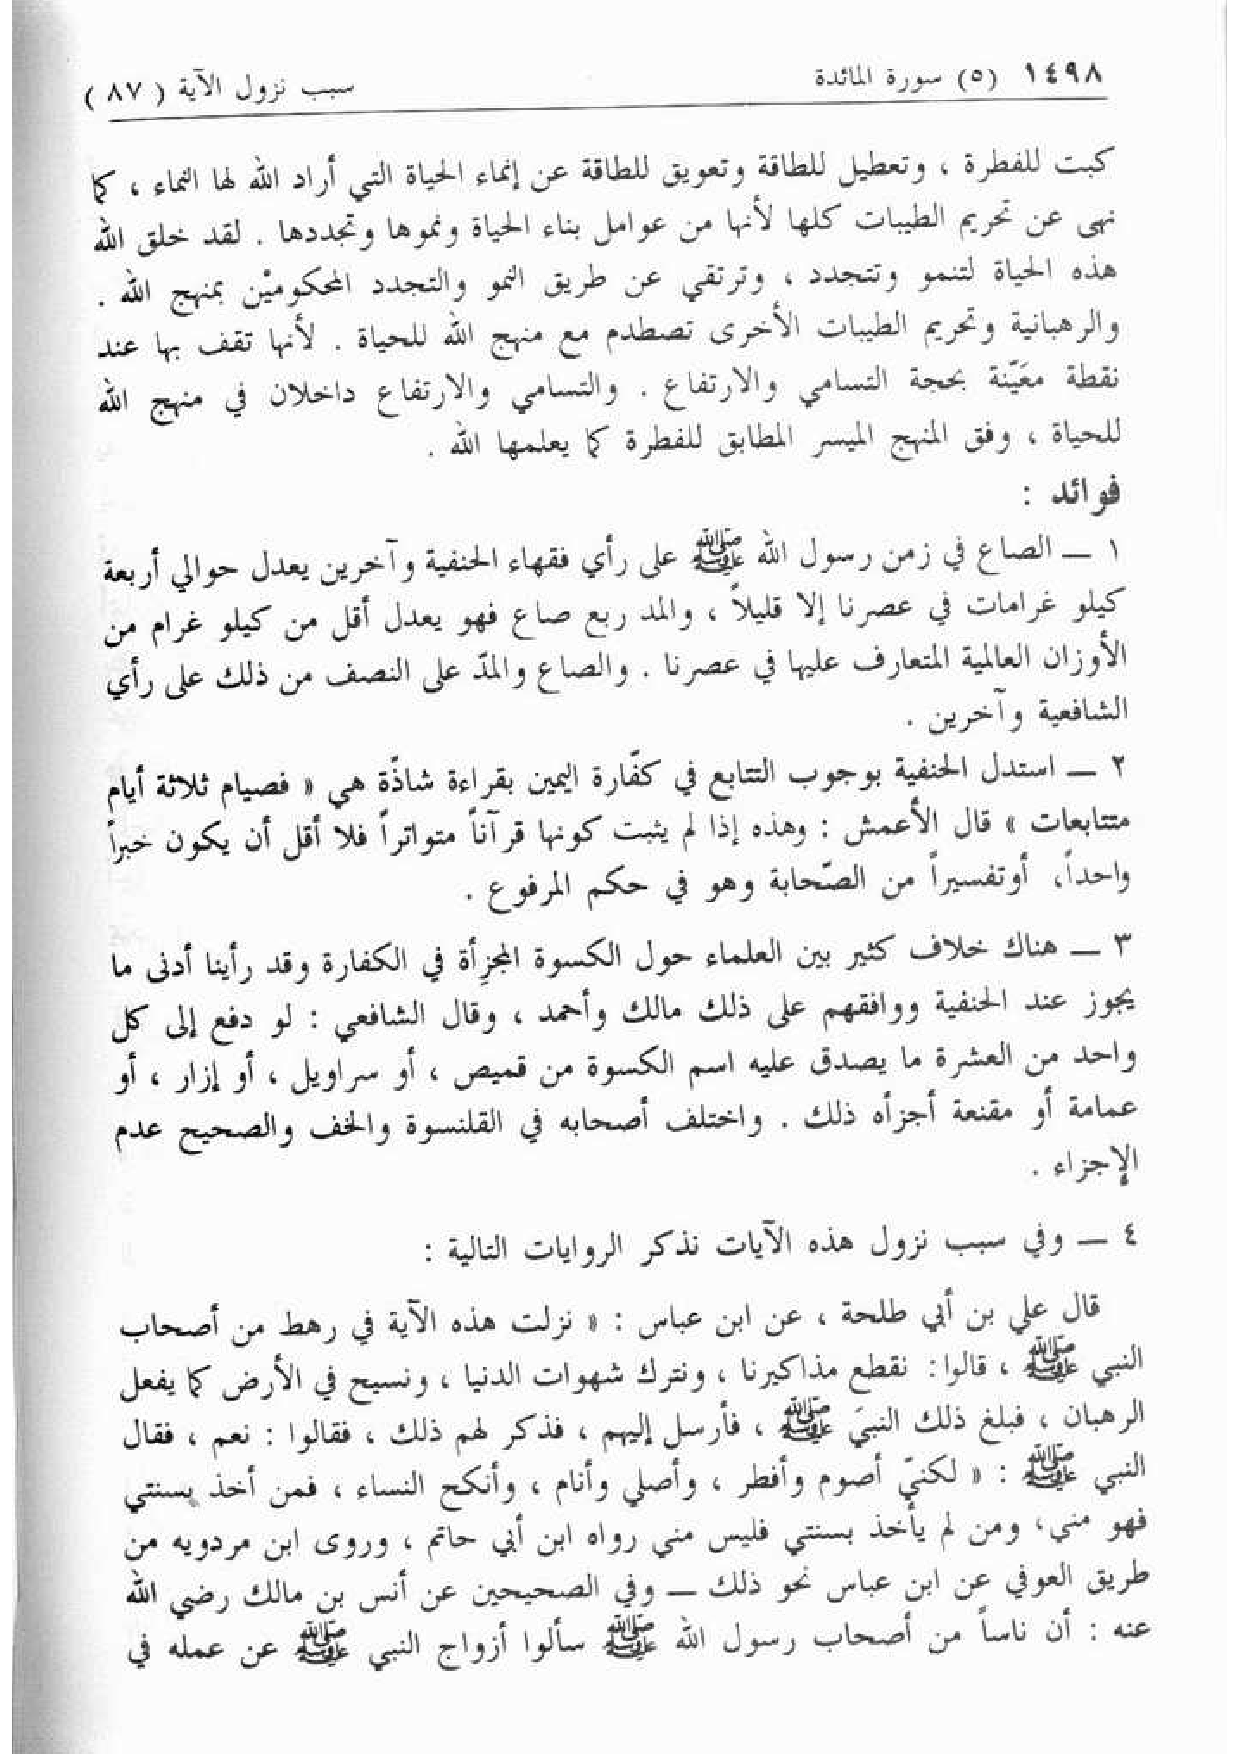 ١٤٩٨ (٥) سورة المائدة سبب نزول الآية ( ٨٧ )
كبت للفطرة ، وتعطيل للطاقة وتعويق للطاقة عن إنماء الحياة التي أراد الله لها النماء ، كما
نهى عن تحريم الطيبات كلها لأنها من عوامل بناء الحياة ونموها وتجددها . لقد خلق الله
هذه الحياة لتنمو وتتجدد ، وترتقي عن طريق النمو والتجدد المحكوميْن بمنهج الله .
والرهبانية وتحريم الطيبات الأخرى تصطدم مع منهج الله للحياة . لأنها تقف بها عند
نقطة معَيّنة بحجة التسامي والارتفاع . والتسامي والارتفاع داخلان في منهج الله
للحياة ، وفق المنهج الميسر المطابق للفطرة كما يعلمها الله .
فوائد :
١ ــ الصاع في زمن رسول الله ﷺ على رأي فقهاء الحنفية وآخرين يعدل حوالي أربعة
كيلو غرامات في عصرنا إلا قليلاً ، والمد ربع صاع فهو يعدل أقل من كيلو غرام من
الأوزان العالمية المتعارف عليها في عصرنا . والصاع والمدّ على النصف من ذلك على رأي
الشافعية وآخرين .
٢ ــ استدل الحنفية بوجوب التتابع في كفّارة اليمين بقراءة شاذّة هي « فصيام ثلاثة أيام
متتابعات » قال الأعمش : وهذه إذا لم يثبت كونها قرآناً متواتراً فلا أقل أن يكون خبراً
واحداً، أوتفسيراً من الصّحابة وهو في حكم المرفوع .
٣ ــ هناك خلاف كثير بين العلماء حول الكسوة المجزِأة في الكفارة وقد رأينا أدنى ما
يجوز عند الحنفية ووافقهم على ذلك مالك وأحمد ، وقال الشافعي : لو دفع إلى كل
واحد من العشرة ما يصدق عليه اسم الكسوة من قميص ، أو سراويل ، أو إزار ، أو
عمامة أو مقنعة أجزأه ذلك . واختلف أصحابه في القلنسوة والخف والصحيح عدم
الإجزاء .
٤ ــ وفي سبب نزول هذه الآيات نذكر الروايات التالية :
قال علي بن أبي طلحة ، عن ابن عباس : « نزلت هذه الآية في رهط من أصحاب
النبي ﷺ ، قالوا: نقطع مذاكيرنا ، ونترك شهوات الدنيا ، ونسيح في الأرض كما يفعل
الرهبان ، فبلغ ذلك النبيَ ﷺ ، فأرسل إليهم ، فذكر لهم ذلك ، فقالوا : نعم ، فقال
النبي ﷺ : « لكنيّ أصوم وأفطر ، وأصلي وأنام ، وأنكح النساء ، فمن أخذ بسنتي
فهو مني، ومن لم يأخذ بسنتي فليس مني رواه ابن أبي حاتم ، وروى ابن مردويه من
طريق العوفي عن ابن عباس نحو ذلك ــ وفي الصحيحين عن أنس بن مالك رضي الله
عنه : أن ناساً من أصحاب رسول الله ﷺ سألوا أزواج النبي ﷺ عن عمله في